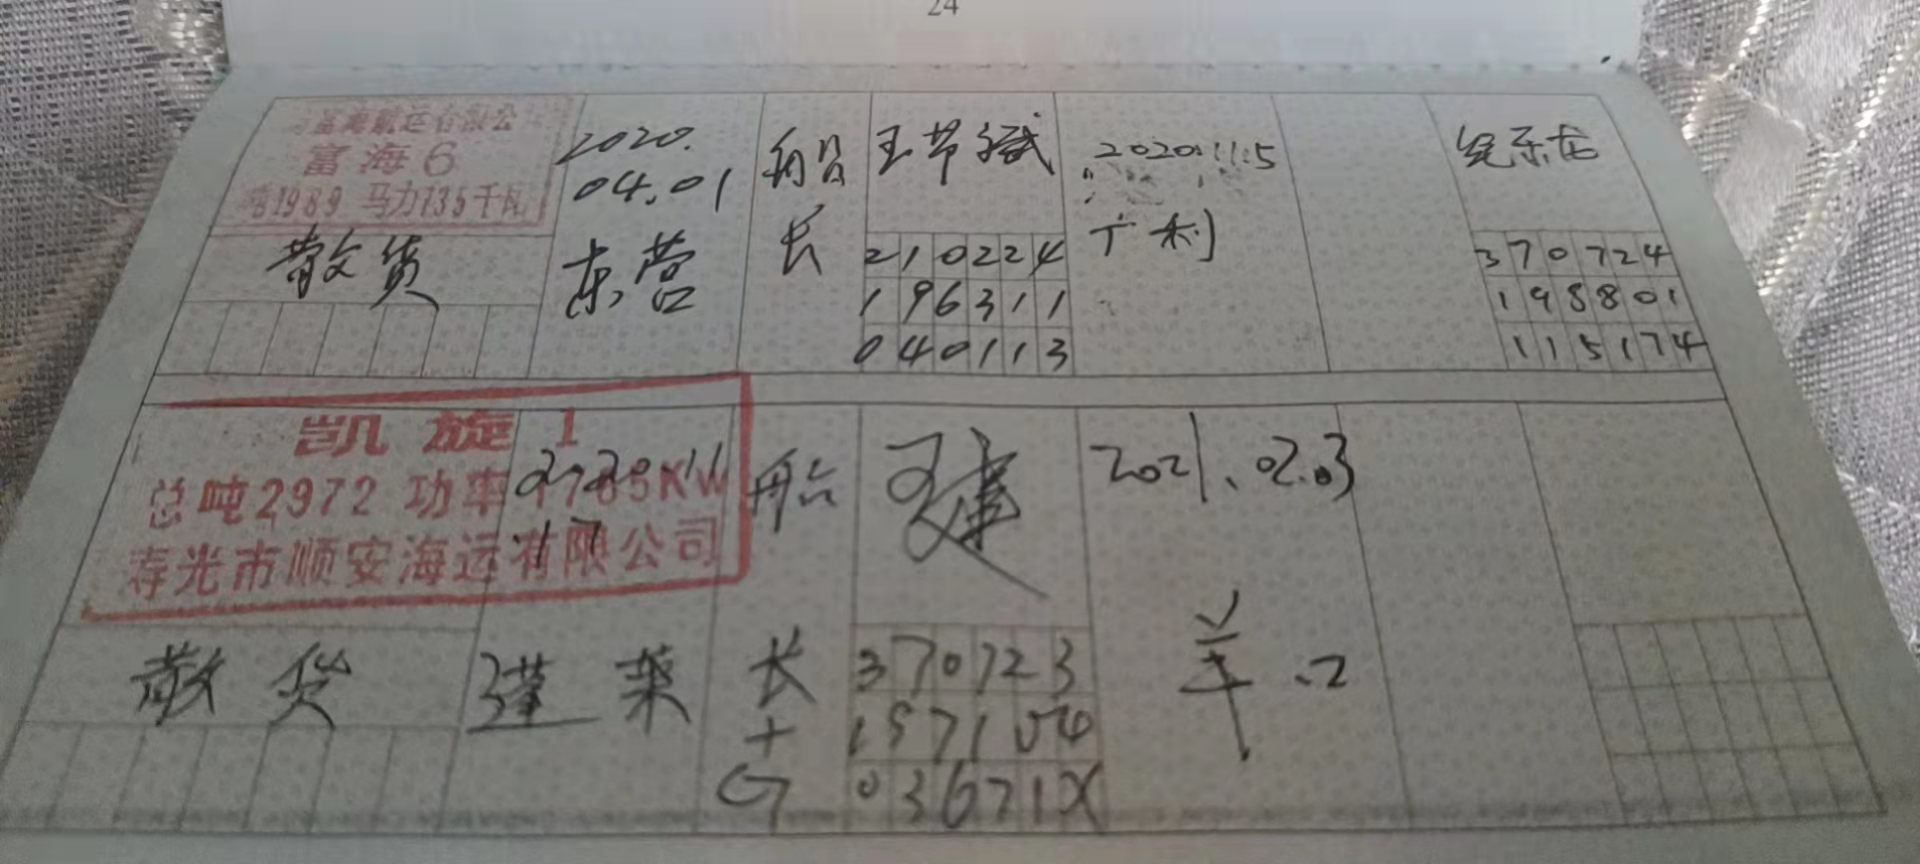 24
富海航运有限公
富海6
吨1989 马力735千瓦
散货
2020.
04.01
东营
船
长
210224
196311
040113
2020.11.5
广利
370724
198801
115174
凯旋 1
总吨2972 功率1765KW
寿光市顺安海运有限公司
散货
蓬莱
船
长
+
G
建
370723
197104
03671X
2021.02.03
羊口